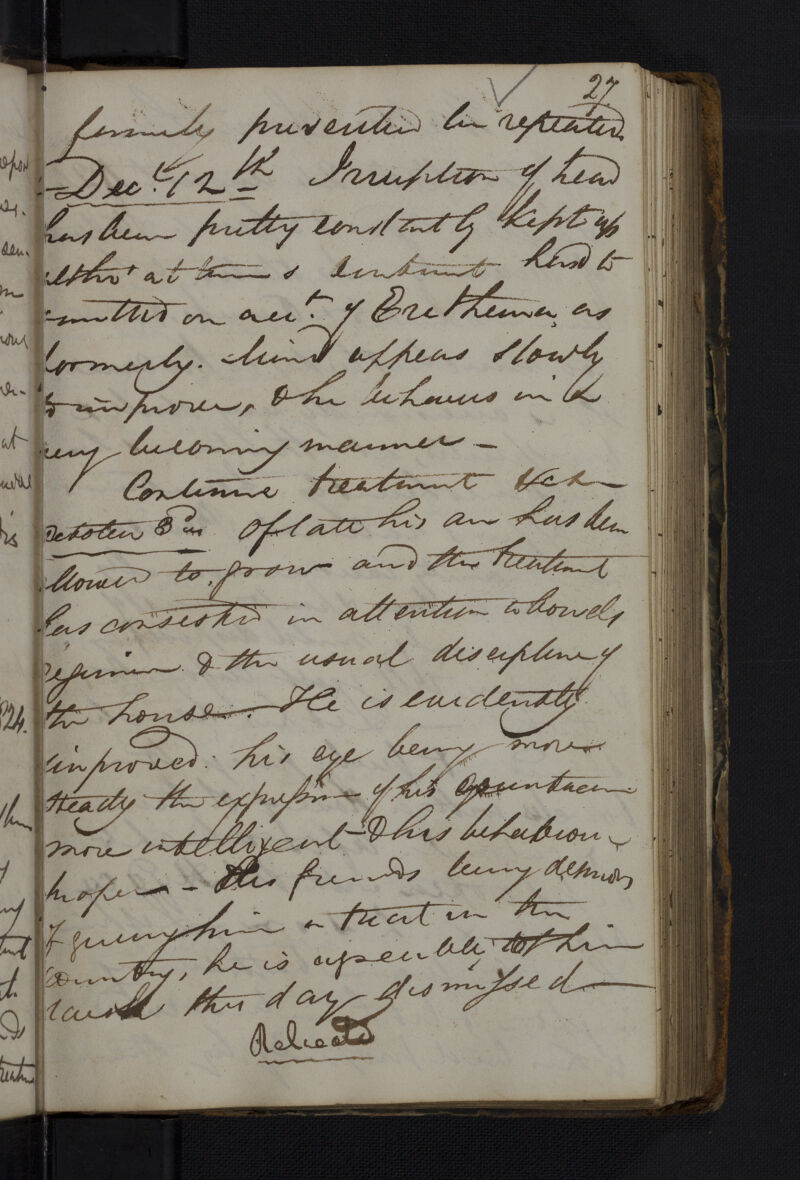 27
formerly prevented be repeated
Dec.r 12th Irruption of head
has been pretty constantly kept up
altho' at times ointment had to
omitted on acct. of Erethema as
formerly. Mind appears slowly
to improve, & he behaves in a
very becoming manner –
Continue treatment
October 3d Of late his has been
allowed to grow and the treatment
has consisted in attention to bowels
regimen & the usual discipline of
the house. He is evidently
improved. his eye being more
steady the expression of his countenance
more intelligent & his behaviour
proper – His friends being desirous
of giving him a trial in the
country, he is agreeably to
this day dismissed –
Relieved